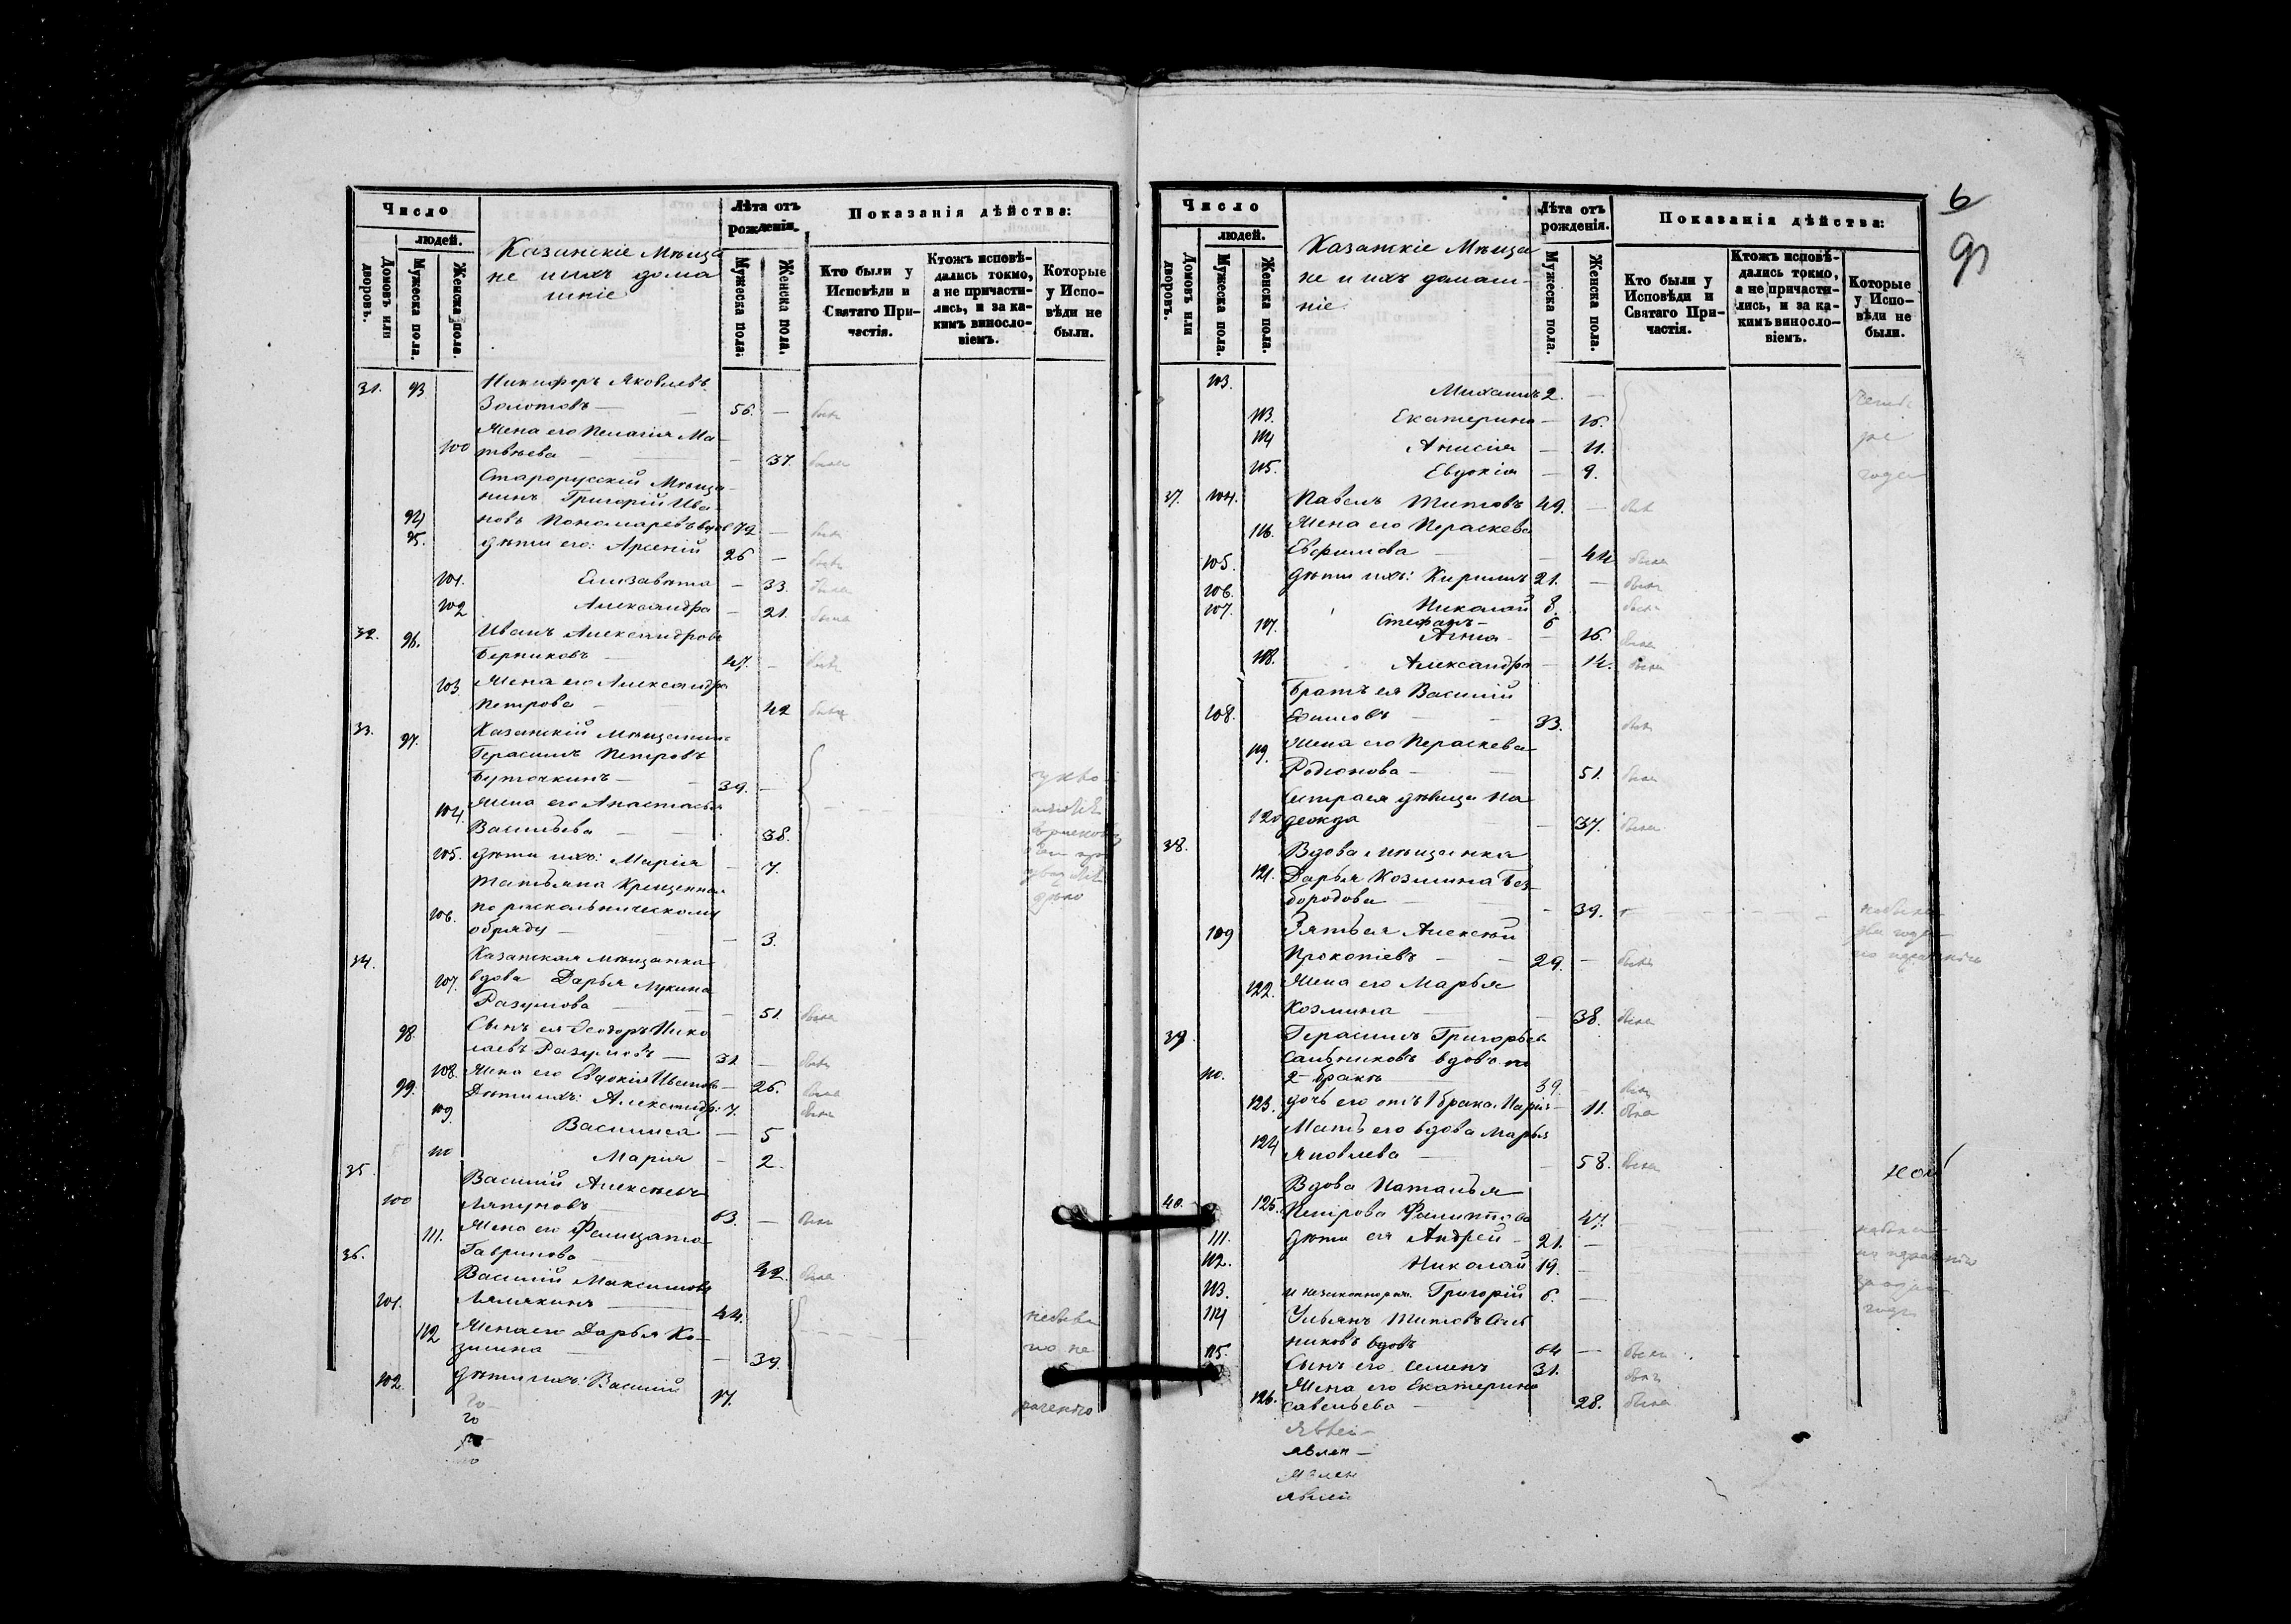 Число
людей.
Домовъ или дворовъ.
Мужеска пола.
Женска пола.
Казанскіе Мѣща
не и ихъ дома
шніе
Лѣта отъ
рожденія.
Мужеска пола.
Женска пола.
Показанія дѣйства:
Кто были у
Исповѣди и
Святаго При-
частія.
Ктожъ исповѣ-
дались токмо,
а не причасти-
лись, и за ка-
кимъ виносло-
віемъ.
Которые
у Испо-
вѣди не
были.
31. 93 Никифоръ Яковлевъ
Золотовъ — 56. — былъ
Жена его Пелагія Ма-
100 твѣева — 37. была
Старорусскій Мѣща-
нинъ Григорій Ива-
94 новъ Пономаревъ вдов 72 — былъ
95. дѣти его: Арсеній 26 — былъ
101. Елизавета — 33. была
102 Александра — 21. была
32. 96. Иванъ Александровъ
Берниковъ — 47. — былъ
103 Жена его Александра
Петрова — 42 была
33. 97. Казанскій Мѣщанинъ
Герасимъ Петровъ
Буточкинъ — 39. —
104. Жена его Анастасья
Васильева — 38.
105. дѣти ихъ: Марія — 7.
Татьяна Крещенная
106. по раскольническому
обряду — 3.
34. Казанская мѣщанка
107. вдова Дарья Лукина
Разумова — 51. была
98. Сынъ ея Ѳеодоръ Нико
лаевъ Разумовъ — 31 — былъ
108. Жена его Евдокія Иванова — 26. была
99. Дѣти ихъ: Александръ 7. былъ
109. Василиса — 5
110 Марія — 2.
35. Василій Алексѣевъ
100 Ляпуновъ 63. — былъ
111. Жена его Фелицата
36. Гаврилова — 42. была
Василій Максимовъ
101. Лямкинъ — 44.
112 Жена его Дарья Ко-
зьмина — 39.
102. дѣти ихъ: Василій 17.
го
го
6
91
Число
людей.
Домовъ или дворовъ.
Мужеска пола.
Женска пола.
Казанскіе Мѣща
не и ихъ домаш-
ніе
Лѣта отъ
рожденія.
Мужеска пола.
Женска пола.
Показанія дѣйства:
Кто были у
Исповѣди и
Святаго При-
частія.
Ктожъ исповѣ-
дались токмо,
а не причасти-
лись, и за ка-
кимъ виносло-
віемъ.
Которые
у Испо-
вѣди не
были.
103. Михаилъ 2. —
113. Екатерина — 16.
114 Анисія — 11.
115. Евдокія — 9. года
37. 104. Павелъ Титовъ 49. — былъ
116. Жена его Параскева
Евфимова — 44 была
105. дѣти ихъ: Кирилъ 21. — былъ
106. Николай 8. былъ
107. Стефанъ — 6
117. Анна — 16. была
118. Александра — 14. была
Братъ ея Василій
108. Ефимовъ — 33. былъ
119. Жена его Параскева
Родіонова — 51. была
Сестра ея дѣвица На
120 дежда — 37. была
38. Вдова мѣщанка
121. Дарья Козмина Без-
бородова — 39. не была
109 Зять ея Алексѣй два года
Прокопіевъ — 29. — былъ
122. Жена его Марья
Козмина — 38. была
39. Герасимъ Григорьевъ
Сальниковъ вдовъ по
110. 2 бракѣ 39. былъ
123. дочь его отъ 1 брака Марія — 11. была
Мать его вдова Марья
124 Яковлева — 58. была
Вдова Наталья
40. 125. Петрова Филиппова 47.
111. дѣти ея Андрей — 21. —
112. Николай 19. —
113. и незаконнорж. Григорій 6. —
114 Ульянъ Титовъ Саль
никовъ вдовъ 64 — былъ
115. Сынъ его Семенъ 31. былъ
Жена его Екатерина
126. Савельева — 28. была
явлен —
явлен